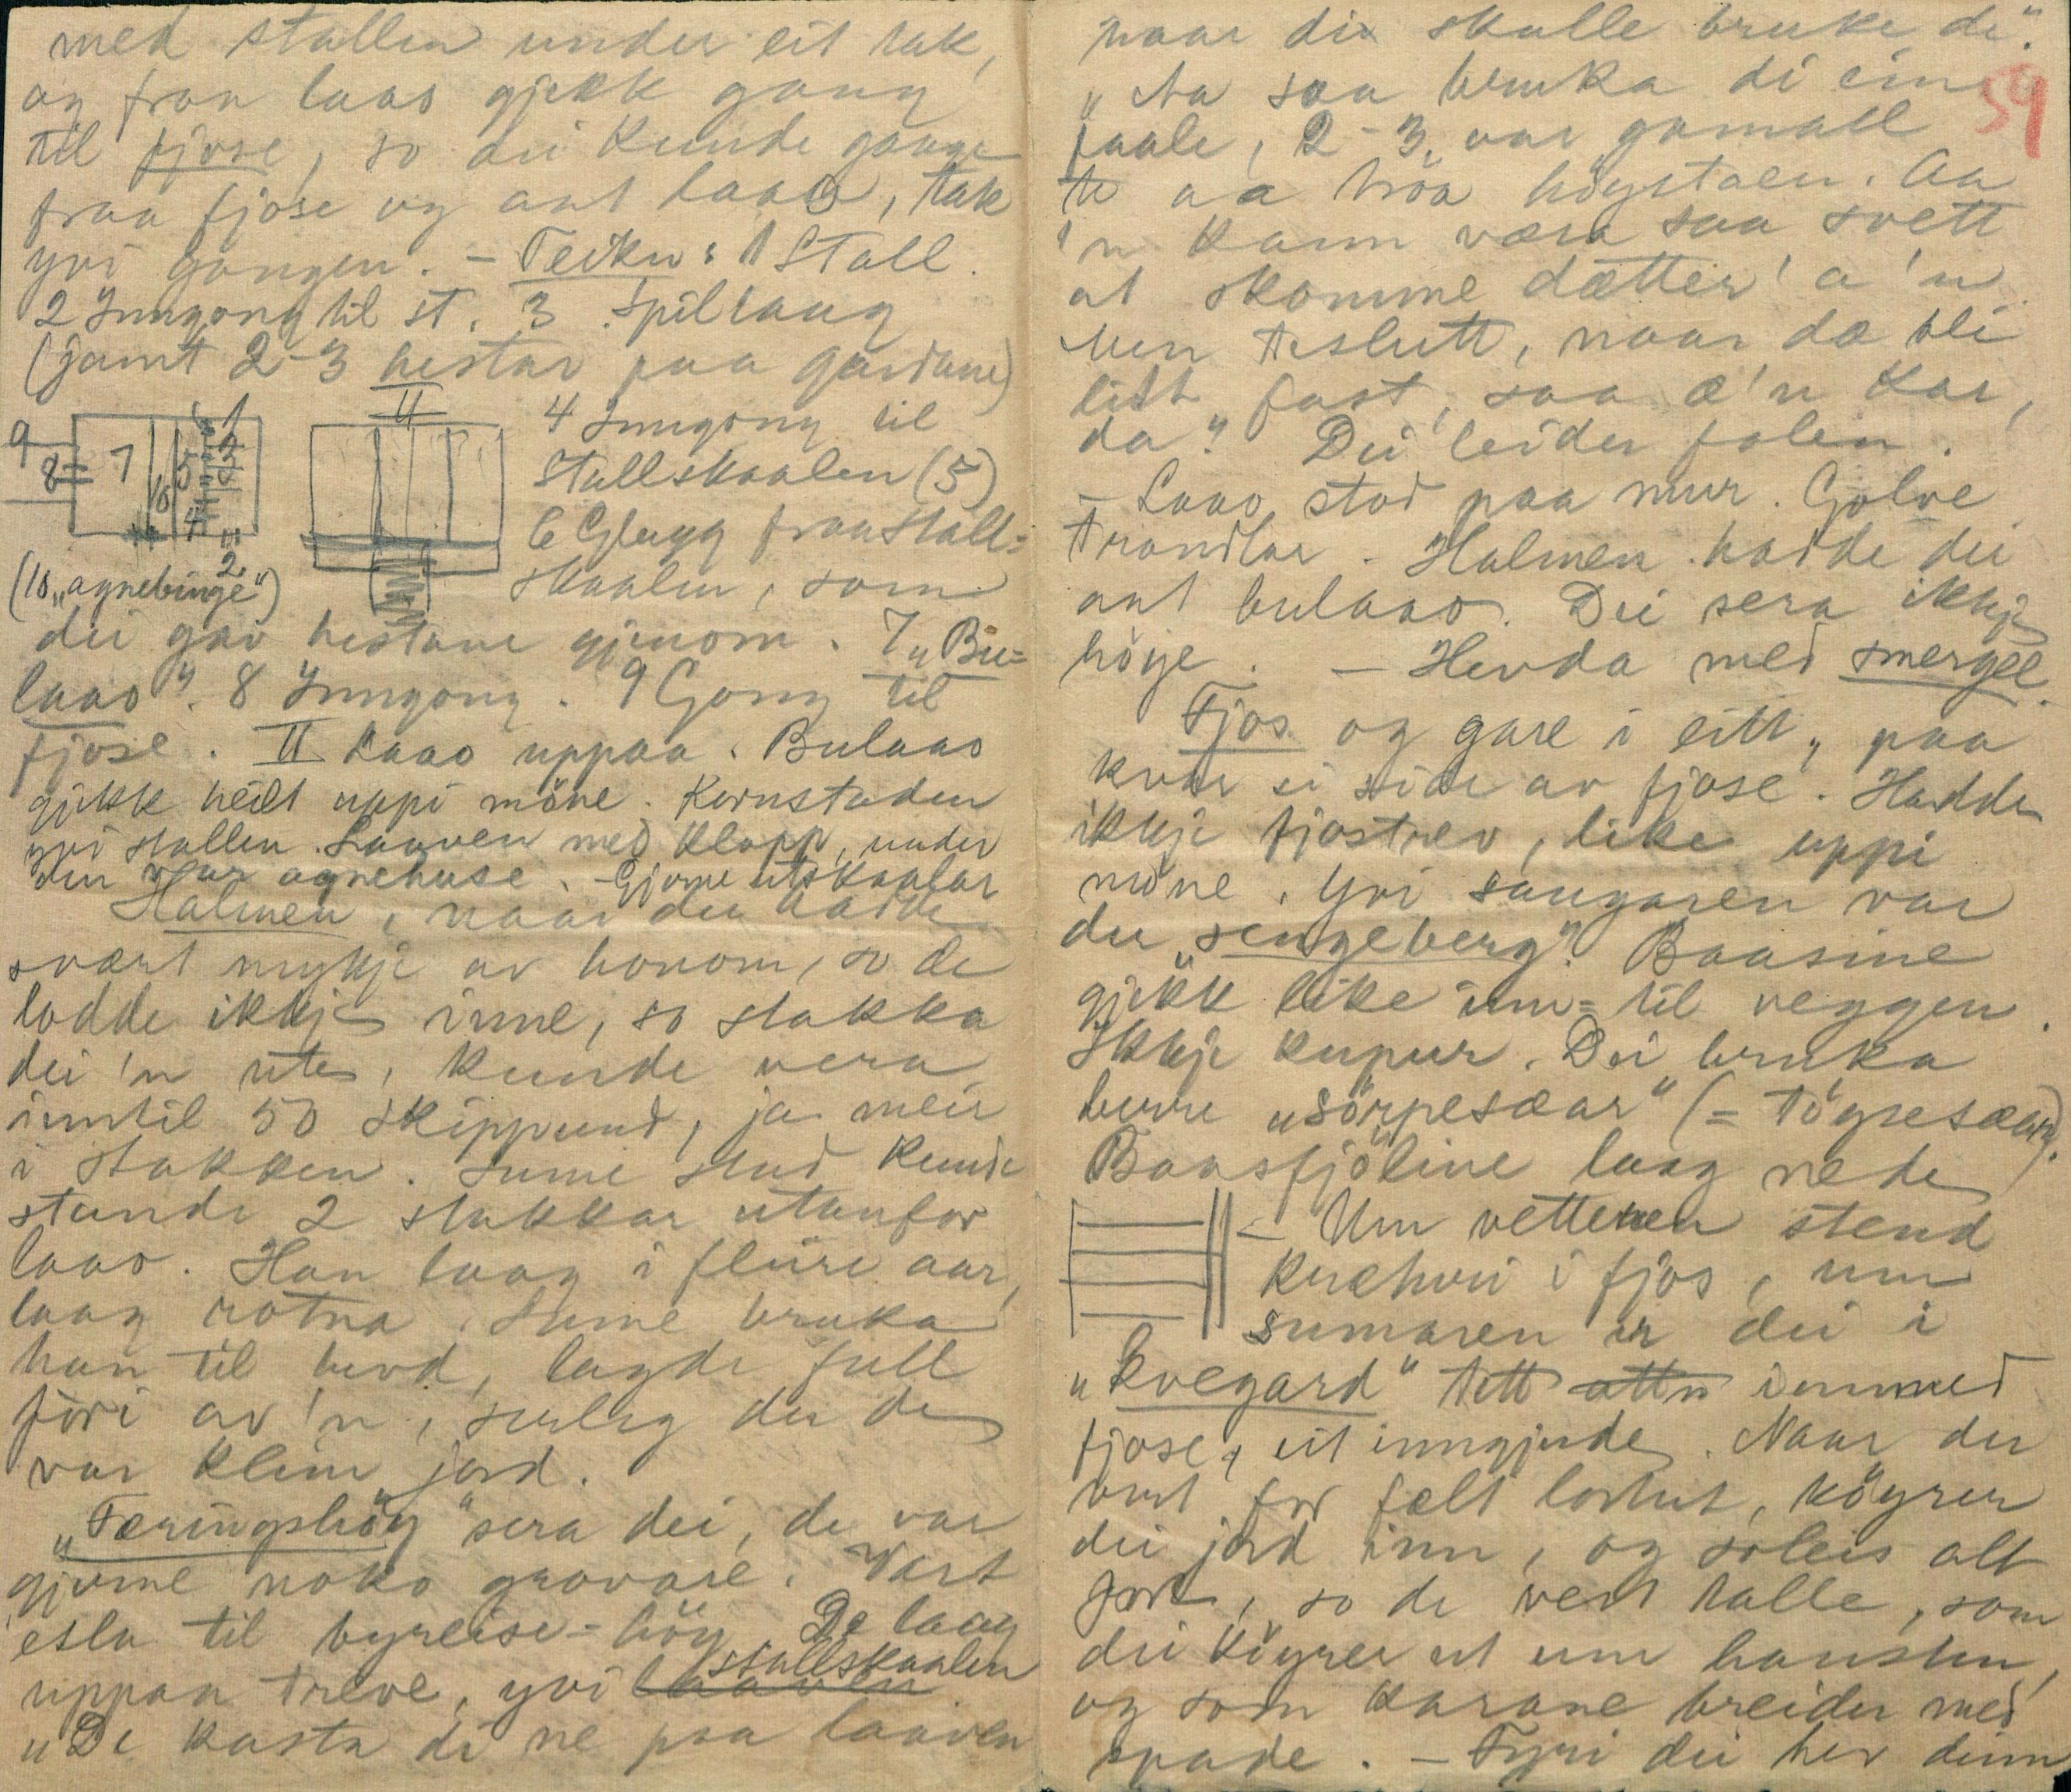 med stallen under eit tak,
og fraa laao gjekk gang
til fjøse, so dei kunde gange
fraa fjøse og aat laao, tak
yvi gangen. – Teikn: 1 Stall.
2 Inngong til st. 3 Spiltaug
(jamt 2-3 hestar paa gardane)
II
9 8 7 6 5 4 3 2 1
4 Inngong til
Stallskaalen (5)
6 Glugg fraa stall-
skaalen, som
(10 „agnebinge")
dei gav hestane gjenom. 7 „Bu-
laao". 8 Inngong. 9 Gong til
fjøse. II Laao uppaa. Bulaao
gjekk heilt uppi møne. Kornstaden
yvi stallen. Laaven med klopp, under
den var agnehuse. – Gjerne utskaalar
Halmen, naar dei hadde
svært mykje av honom, so de
lodde ikkje inne, so stakka
dei 'n ute, kunde vera
inntil 50 skippund, ja meir
i stakken. Sume stad kunde
stande 2 stakkar utanfor
laao. Han laag i fleire aar,
laag rotna. Sume bruka
han til hevd, lagde full
føri av 'n, serleg der de
var klein jord.
„Færingshøy" sera dei, de var
gjerne noko grovare. Vart
etla til byreise-høy. De laag
uppaa treve, yvi laaven stallskaalen
„De kasta di ne paa laaven
naar di skulle bruke de".
59
„Aa saa bruka di ein
faale, 2-3 aar gamall
te aa trøa høystaen. Aa
'n kann væra saa svett
at skomme dætter 'a 'n
Men teslutt, naar dæ bli
litt fast, saa æ 'n kar,
da". Dei leider folen.
– Laao stod paa mur. Golve
trondlar. Halmen hadde dei
aat bulaao. Dei sera ikkje
høye. – Hevda med smergel.
Fjos og gare i eitt, paa
kvar ei side av fjose. Hadde
ikkje fjostrev, like uppi
møne. Yvi saugaren var
der „sengeberg". Baasine
gjekk like inn-til veggen.
Ikkje kupur. Dei bruka
berre „sørpesæar" (= tøgresæar).
Baasfjøline laag nede
– Um vetteren stend
kræturi i fjos, um
sumaren er dei i
„kvegard" tett attn innmed
fjose, eit inngjerde. Naar der
vert for fælt lortut, køyrer
dei jord inn, og soleis alt
fort, so de vert talle, som
dei køyrer ut um hausten,
og som karane breider med
spade. – Fyri dei her dinn